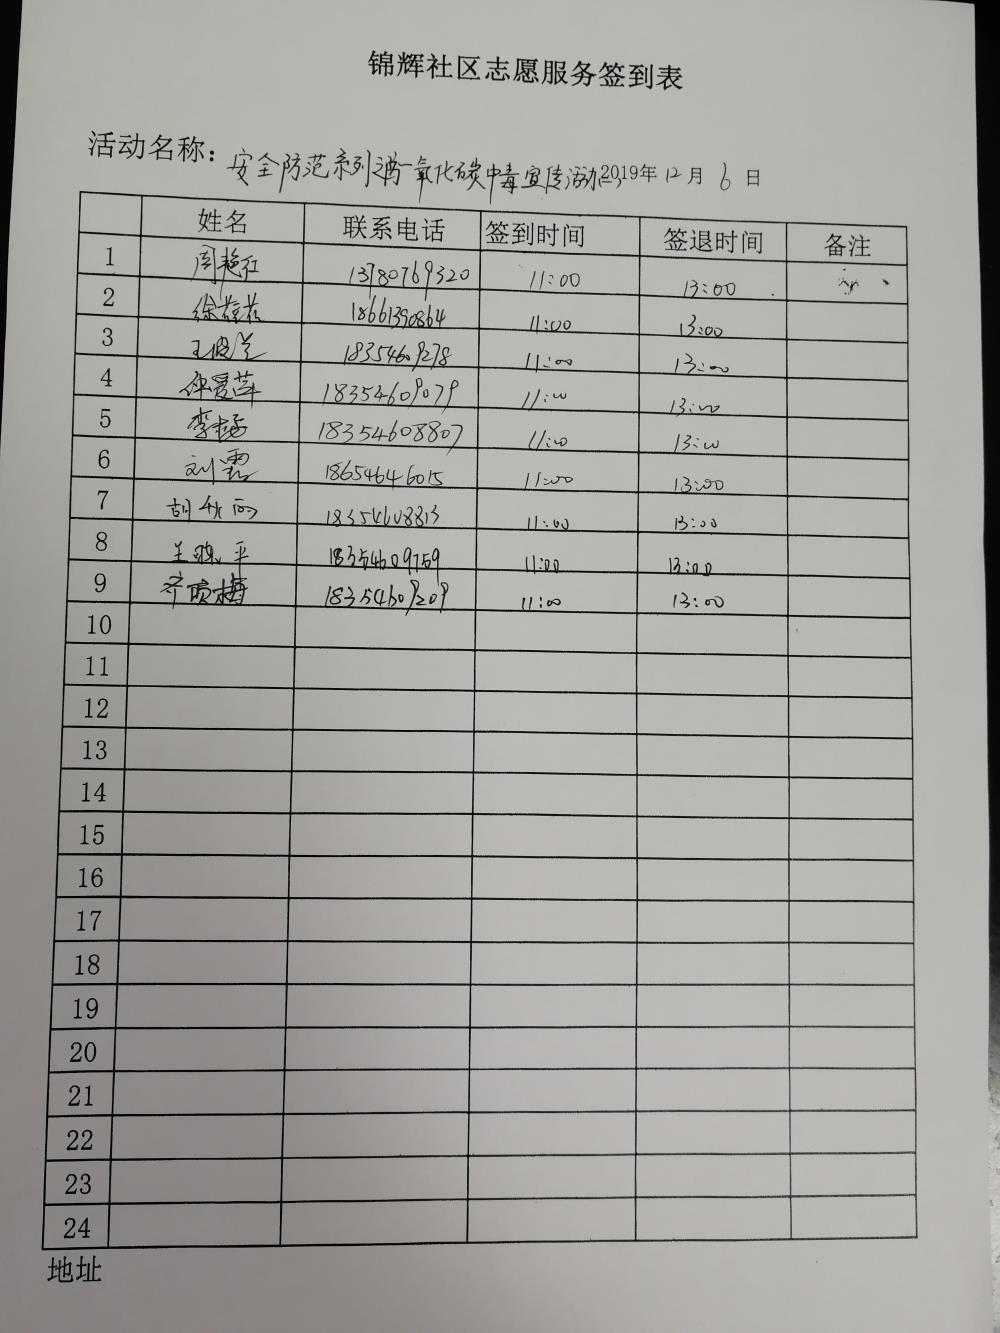 锦辉社区志愿服务签到表
活动名称：安全防范系列之防一氧化碳中毒宣传活动 2019年12月6日
姓名 联系电话 签到时间 签退时间 备注
1 周艳红 13780769320 11:00 13:00
2 徐 18661390864 11:00 13:00
3 王俊兰 18354609278 11:00 13:00
4 仲爱萍 18354609079 11:00 13:00
5 李杨 18354608807 11:00 13:00
6 刘霞 18654646015 11:00 13:00
7 胡秋雨 18354608813 11:00 13:00
8 王晓平 18354609759 11:00 13:00
9 梅 18354609209 11:00 13:00
10
11
12
13
14
15
16
17
18
19
20
21
22
23
24
地址